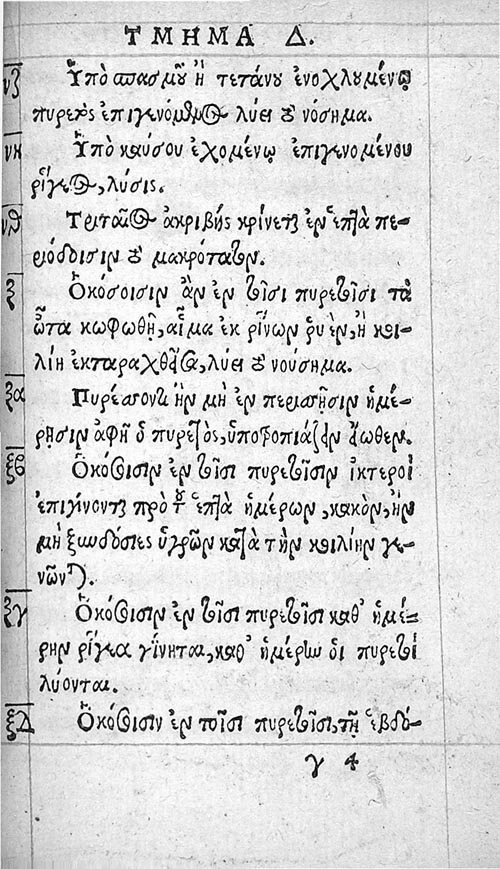 ΤΜΗΜΑ Δ.
νζ Ὑπὸ σπασμοῦ ἢ τετάνου ἐνοχλουμένῳ
πυρετὸς ἐπιγενόμενος λύει τὸ νόσημα.
νη Ὑπὸ καύσου ἐχομένῳ ἐπιγενομένου
ῥίγεος, λύσις.
νθ Τριταῖος ἀκριβὴς κρίνεται ἐν ἑπτὰ πε-
ριόδοισιν τὸ μακρότατον.
ξ Ὁκόσοισιν ἂν ἐν τοῖσι πυρετοῖσι τὰ
ὦτα κωφωθῇ, αἷμα ἐκ ῥινῶν ῥυὲν, ἢ κοι-
λίη ἐκταραχθεῖσα, λύει τὸ νούσημα.
ξα Πυρέσσοντι ἢν μὴ ἐν περισσῇσιν ἡμέ-
ρῃσιν ἀφῇ ὁ πυρετὸς, ὑποτροπιάζειν εἴωθεν.
ξβ Ὁκόσοισιν ἐν τοῖσι πυρετοῖσιν ἴκτεροι
ἐπιγίνονται πρὸ τῶν ἑπτὰ ἡμέρων, κακὸν, ἢν
μὴ ξυνδόσιες ὑγρῶν κατὰ τὴν κοιλίην γέ-
νωνται.
ξγ Ὁκόσοισιν ἐν τοῖσι πυρετοῖσι καθ' ἡμέ-
ρην ῥίγεα γίνηται, καθ' ἡμέρην οἱ πυρετοὶ
λύονται.
ξδ Ὁκόσοισιν ἐν τοῖσι πυρετοῖσι, τῇ ἑβδό-
γ 4